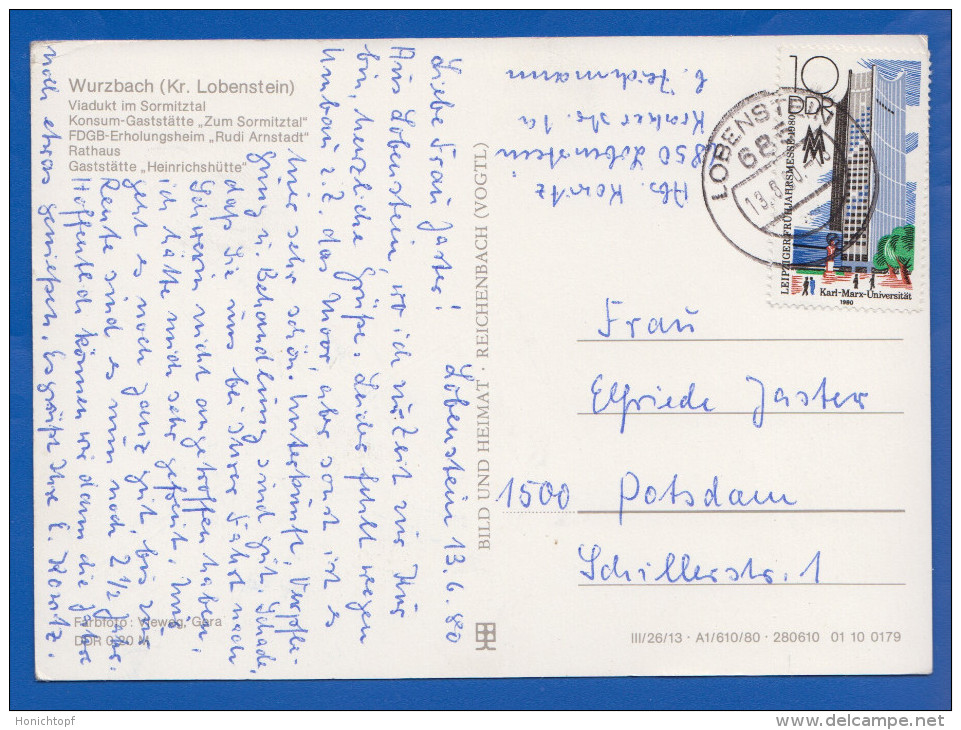 Wurzbach (Kr. Lobenstein)
Viadukt im Sormitztal
Konsum-Gaststätte „Zum Sormitztal"
FDGB-Erholungsheim „Rudi Arnstadt"
Rathaus
Gaststätte „Heinrichshütte"
Lobenstein 13.6.80
Liebe Frau Jaster!
Aus Lobenstein, wo ich zur Zeit zur Kur
bin, herzliche Grüße. Leider fehlt wegen
Umbau z.Z. das Moor, aber sonst ist es
hier sehr schön. Unterkunft, Verpfle-
gung u. Behandlung sind gut. Schade,
daß Sie uns bei Ihrer Fahrt nach
nicht angetroffen haben,
ich hätte mich sehr gefreut. Uns
geht es noch ganz gut, bis zur
Rente sind es nun noch 2 1/2 Jahr.
Hoffentlich können wir dann die Jahre
noch etwas genießen. Es grüßt Ihre E. Kowitz.
Farbfoto: Vieweg, Gera
DDR 0,20 M
BILD UND HEIMAT · REICHENBACH (VOGTL)
Abs. Kowitz
6850 Lobenstein
Str. 1a
LOBENSTEIN
685
10
DDR
MM
LEIPZIGER FRÜHJAHRSMESSE 1980
Karl-Marx-Universität
1980
Frau
Elfriede Jaster
1500 Potsdam
Schillerstr. 1
III/26/13 · A1/610/80 · 280610 01 10 0179
Honichtopf
www.delcampe.net